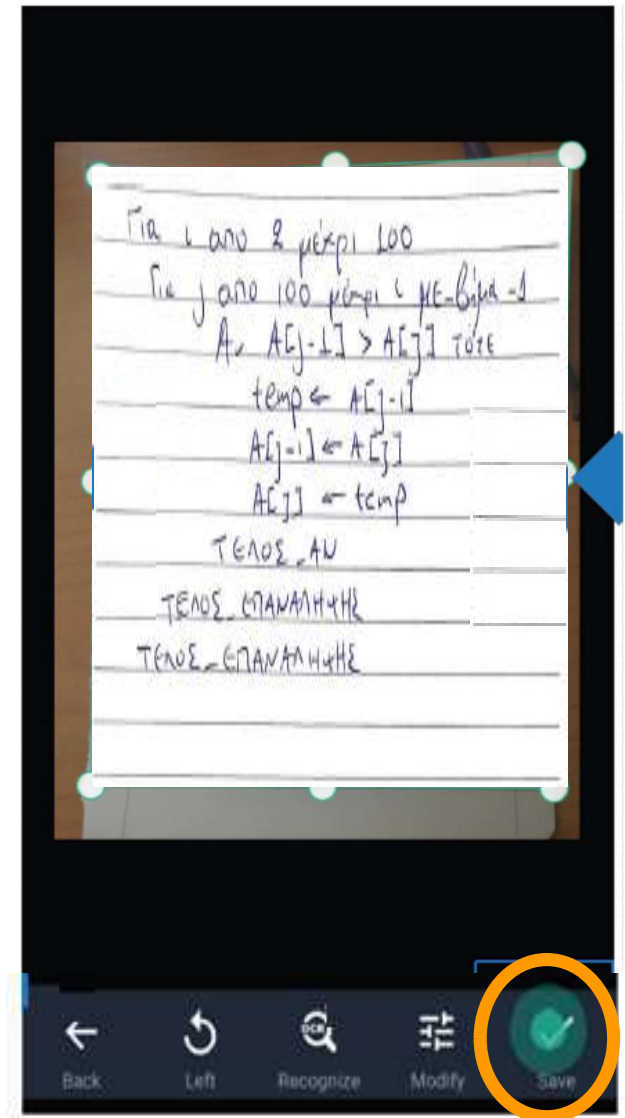 Για ι απο 2 μέχρι 100
Για j απο 100 μέχρι ι με-βήμα -1
Αν A[j-1] > A[j] τότε
temp ← A[j-1]
A[j-1] ← A[j]
A[j] ← temp
ΤΕΛΟΣ_ΑΝ
ΤΕΛΟΣ_ΕΠΑΝΑΛΗΨΗΣ
ΤΕΛΟΣ_ΕΠΑΝΑΛΗΨΗΣ
Back Left Recognize Modify Save
OCR